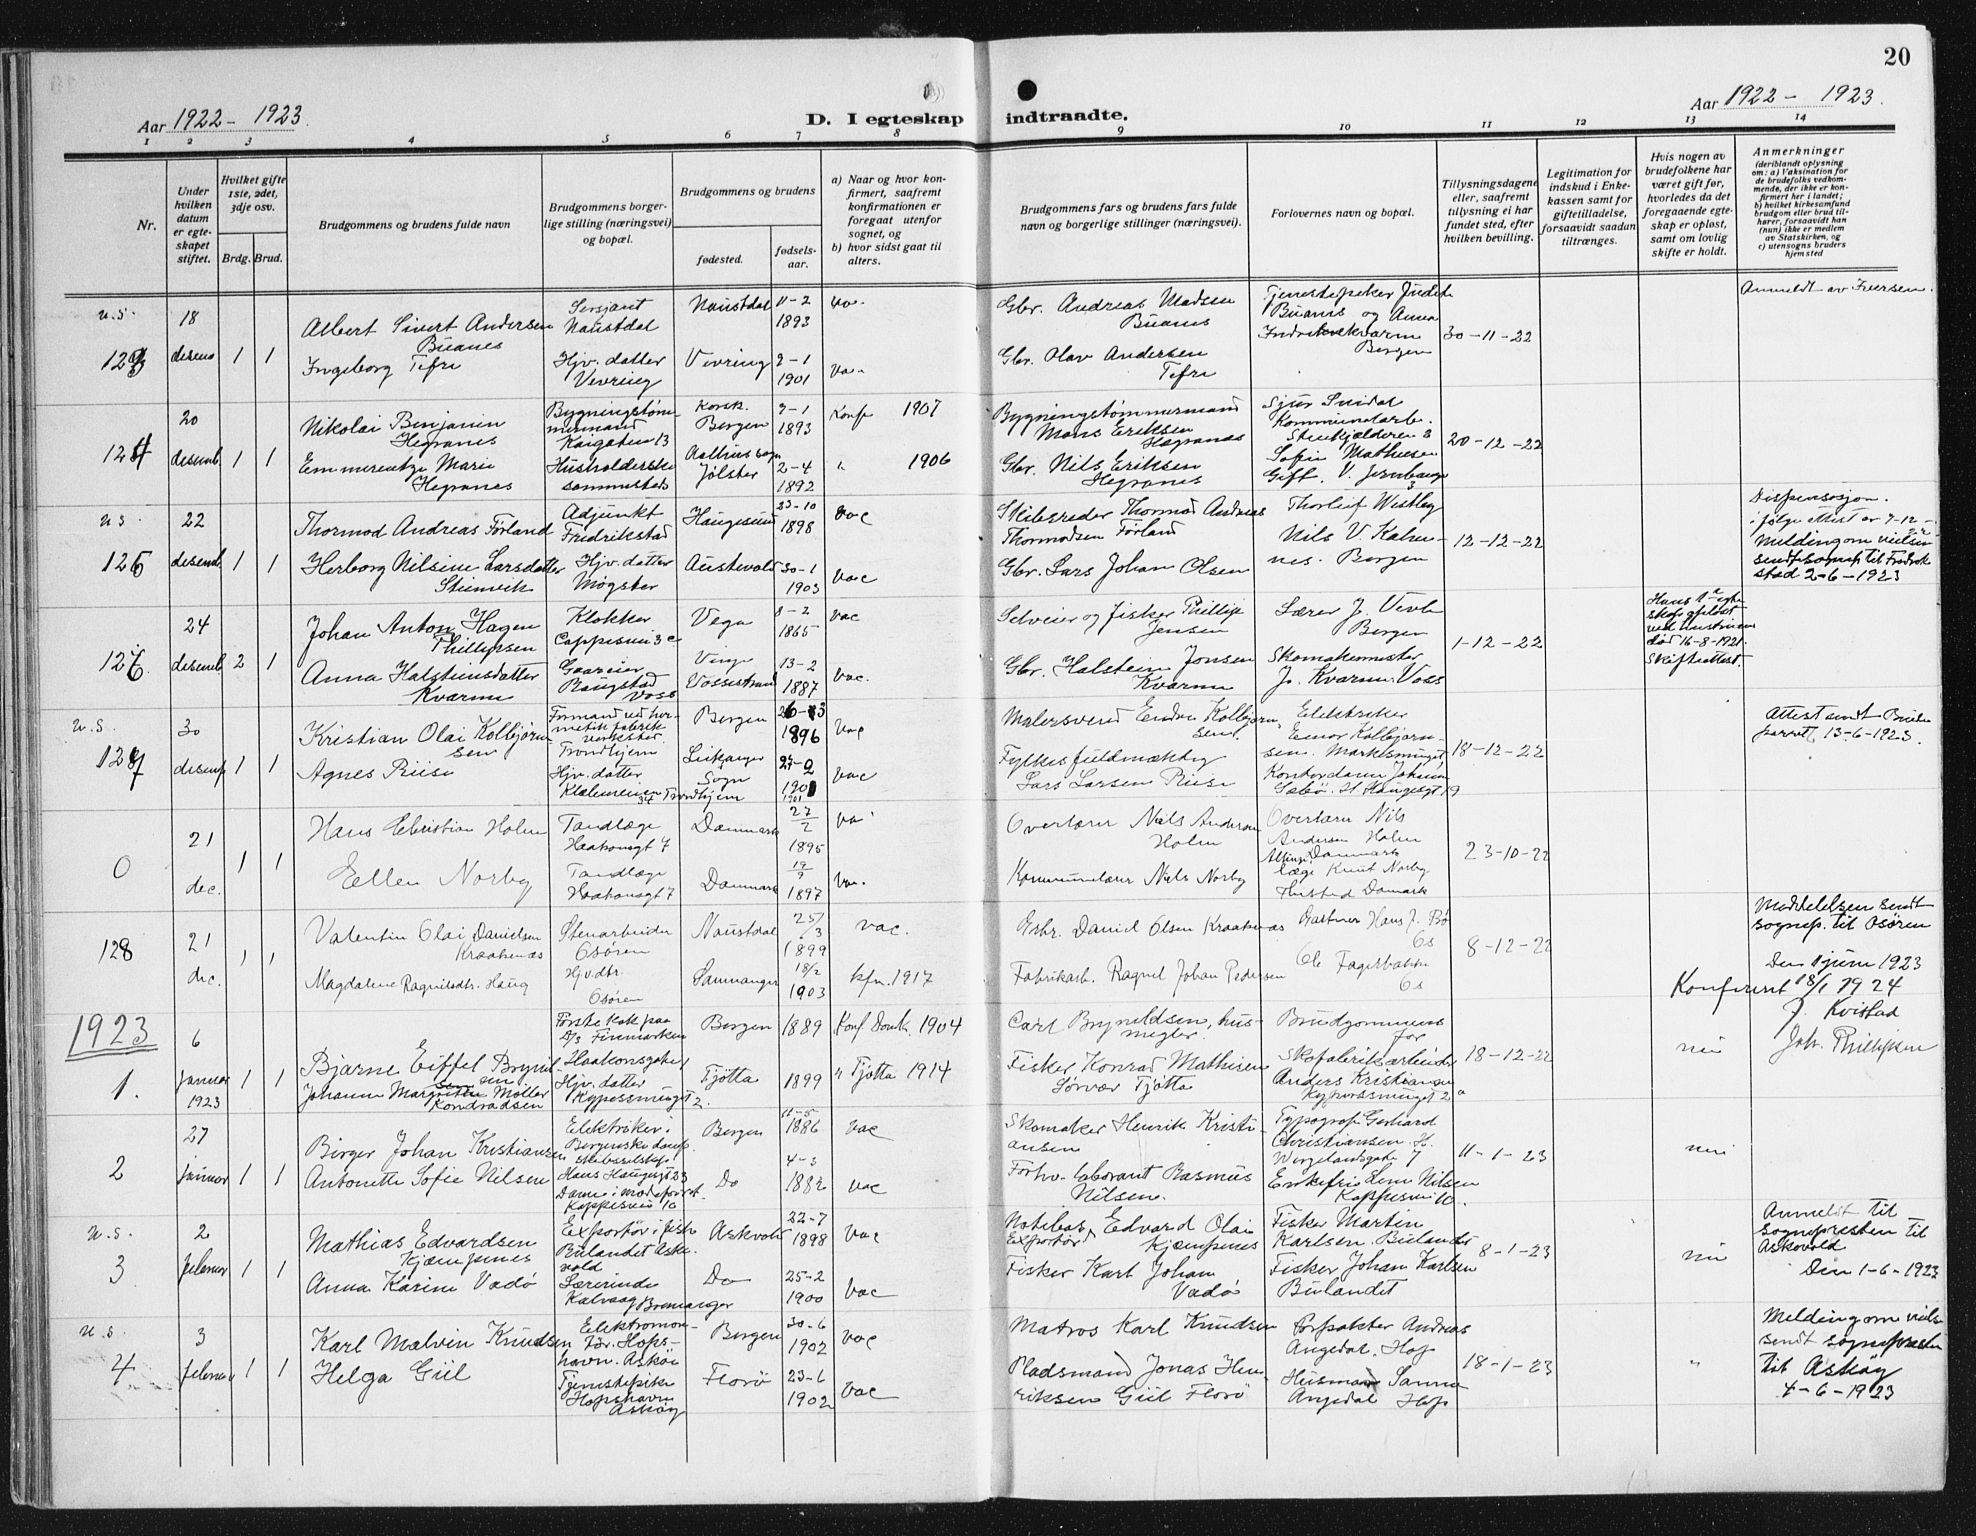 20
Aar 1922 - 1923.
D. I egteskap indtraadte.
Aar 1922 - 1923.
1 2 3 4 5 6 7 8 9 10 11 12 13 14
Nr.
Under hvilken datum er egteskapet stiftet.
Hvilket gifte 1ste, 2det, 3dje osv.
Brdg. Brud.
Brudgommens og brudens fulde navn
Brudgommens borgerlige stilling (næringsvei) og bopæl.
Brudgommens og brudens
fødested.
fødselsaar.
a) Naar og hvor konfirmert, saafremt konfirmationen er foregaat utenfor sognet, og
b) hvor sidst gaat til alters.
Brudgommens fars og brudens fars fulde navn og borgerlige stillinger (næringsvei).
Forlovernes navn og bopæl.
Tillysningsdagene eller, saafremt tillysning ei har fundet sted, efter hvilken bevilling.
Legitimation for indskud i Enkekassen samt for giftetilladelse, forsaavidt saadan tiltrænges.
Hvis nogen av brudefolkene har været gift før, hvorledes da det foregaaende egteskap er opløst, samt om lovlig skifte er holdt.
Anmerkninger
(deriblandt oplysning om: a) Vaksination for de brudefolks vedkommende, der ikke er konfirmert her i landet; b) hvilket kirkesamfund brudgom eller brud tilhører, forsaavidt han (hun) ikke er medlem av Statskirken, og c) utensogns bruders hjemsted
u.s. 18 desem 1 1
123
Albert Sivert Andersen Buanes
Sersjant Naustdal
Naustdal 11-2 1893 vac.
Gbr. Andreas Madsen Buanes
Tjenestepiker Judit Buanes og Anna Bergen
30-11-22
Ingeborg Tefre
Hjv. datter Vevring
Vevring 2-1 1901 vac.
Gbr. Olav Andersen Tefre
20 desemb 1 1
124
Nikolai Benjamin Hegranes
Bygningstømmermand Kaigaten 13
Korsk. Bergen 7-1 1893 Konf 1907
Bygningstømmermand Mons Eriksen Hegranes
Sjur Smidal Kommunalarb. Stenkjelderen 3
20-12-22
Emmerentze Marie Hegranes
Husholderske sammesteds
Aalhus sogn Jølster 2-4 1892 " 1906
Gbr. Nils Eriksen Hegranes
Sofie Mathiesen Gift. V. Jernbangt 3
u.s. 22 desemb 1 1
125
Thormod Andreas Førland
Adjunkt Fredrikstad
Haugesund 23-10 1898 Vac
Skibsreder Thormod Andreas Thormodsen Førland
Thorleif Westby
12-12-22
Dispensasjon. i følge attest av 7-12-22
Melding om vielsen sendt sognep. til Fredrikstad 2-6-1923
Herborg Nilsine Larsdatter Steinvik
Hjv. datter Møgster
Austevold 30-1 1903 vac
Gbr. Lars Johan Olsen
Nils V. Kalvenes. Bergen
24 desemb 2 1
126
Johan Anton Hagen Phillipsen
Klokker Cappesvei 3 c
Vega 8-2 1865 vac
Selveier og fisker Phillip Jensen
Lærer J. Bergen
1-12-22
Hans 1ste egteskap opløst ved hustruens død 16-8-1921. Skifteattest.
Anna Halsteinsdatter Kvarme
Gaareier Baugstad Voss
Vinje Vossestrand 13-2 1887 vac.
Gbr. Halstein Jonsen Kvarme
Skomakermester J. Kvarme. Voss
u.s. 30 desemb 1 1
127
Kristian Olai Kolbjørnsen
Formand ved hermetikfabrik Trondhjem
Bergen 1896 vac
Malersvend Endre Kolbjørnsen.
Elektriker Einar Kolbjørnsen. Markesmuget
18-12-22
Attest sendt 13-6-1923.
Agnes Riise
Hjv. datter 34 Trondhjem
Leikanger Sogn 1901 vac
Fylkesfuldmæktig Lars Larsen Riise
Kontordame Johanne Sæbø. H. Haugesgt 19
0 21 dec. 1 1
Hans Christian Holm
Tandlæge Haakonsgt 7
Danmark 27/2 1895 va
Overlærer Niels Andersen Holm
Overlærer Nils Andersen Holm Danmark
23-10-22
Ellen Norby
Tandlæge Haakonsgt 7
Danmark 1897 Vac.
Kommunelærer Niels Norby
læge Knut Norby Danmark
128 21 dec. 1 1
Valentin Olai Danielsen Kraakenæs
Stenarbeider Osøren
Naustdal 25/3 1899 vac.
Gsbr. Daniel Olsen Kraakenæs
Gartner Hans J. Bø Os
8-12-22
Meddelelsen sendt sognep. til Osøren Den 1 juni 1923
Magdalene Ragnvilsdtr. Haug
Hjv. dtr. Osøren
Samnanger 18/2 1903 kfn. 1917
Fabrikarb. Ragnel Johan Pedersen
Ole Fagerbakke Os
Konferert 18/1 1924
J. Kvistad
Joh. Phillipsen
1923
6 januar 1923 1 1
1.
Bjarne Eiffel Brynildsen
Første kok paa D/S Finmarken Haakonsgaten
Bergen 1889 Konf. Domk. 1904
Carl Brynildsen, husmegler.
Brudgommens far
18-12-22
nei
Johanne Margrethe Møller Kondradsen
Hjv. datter Kyppersmuget 2.
Tjøtta 1899 " Tjøtta 1914
Fisker Konrad Mathisen Sørvær Tjøtta
Skofabrikarbeider Anders Kristiansen Kyppersmuget 2a
27 januar 1 1
2
Birger Johan Kristiansen
Elektriker. Bergenske dampskibsselskap Hans Haugesgt 23
Bergen 11-5 1886 vac
Skomaker Henrik Kristiansen
Typograf Gerhard Christiansen. H. Wergelandsgate 7
11-1-23
nei
Antonette Sofie Nilsen
Dame i modeforret. Kappesvei 10
Do 4-3 1882 vac
Forhv. laborant Rasmus Nilsen.
Enkefru Lene Nilsen Kappesvei 10.
u.s. 2 februar 1 1
3
Mathias Edvardsen Kjempenes
Exportør i fisk Bulandet Askevold
Askvoll 22-7 1898 Vac
Notebas Exportør Edvard Olai Kjempenes
Fisker Martin Karlsen Bulandet
8-1-23
nei
Anmeldt til sognepresten til Askvold Den 1-6-1923
Anna Karine Vadø
Lærerinde Kalvaag Bremanger
Do 25-2 1900 Vac
Fisker Karl Johan Vadø
Fisker Johan Karlsen Bulandet
u.s. 3 februar 1 1
4
Karl Malvin Knudsen
Elektromontør. Hopshavn. Askøi
Bergen 30-6 1902 vac
Matros Karl Knudsen
Forpakter Andreas Angedal. Hop
18-1-23
"
Melding om vielse sendt sognepresten til Askøy 4-6-1923
Helga Giil
Tjenestepike Hopshavn Askøy
Florø 23-6 1902 vac
Pladsmand Jonas Henriksen Giil Florø
Husmand Sanna Angedal Hop